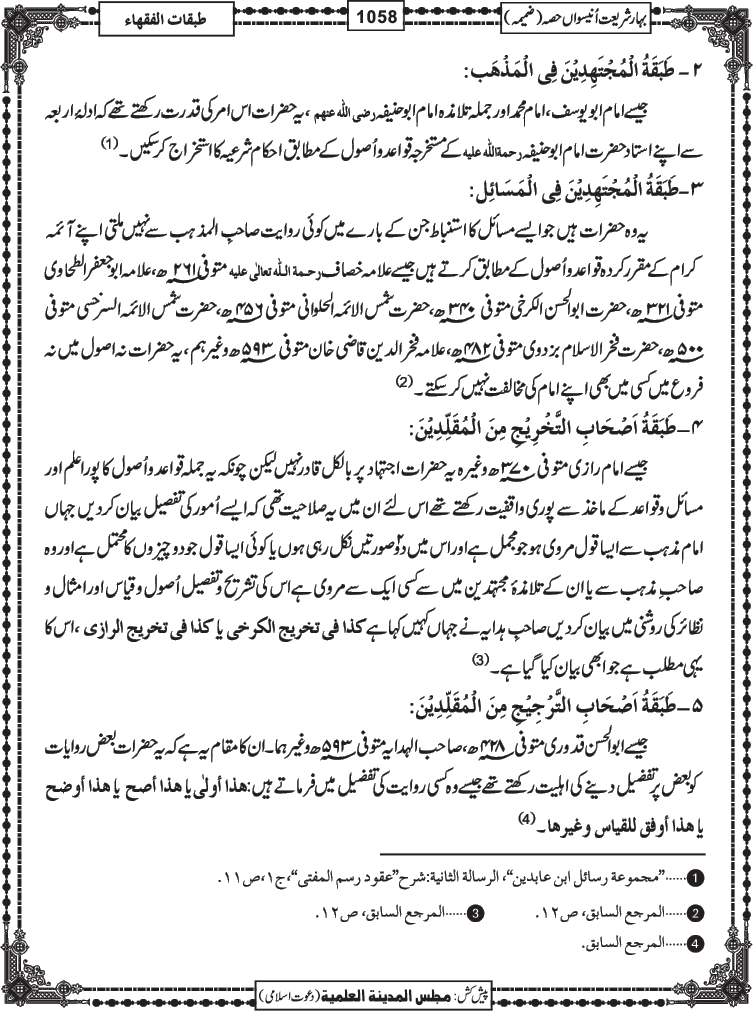 بہارِ شریعت اُنیسواں حصہ (ضمیمہ)
1058
طبقات الفقهاء
۲- طَبَقَةُ الْمُجْتَهِدِيْنَ فِى الْمَذْهَبِ:
جیسے امام ابو یوسف، امام محمد اور جملہ تلامذہ امام ابوحنیفہ رضی اللہ عنہم، یہ حضرات اس امر کی قدرت رکھتے تھے کہ ادلۂ اربعہ
سے اپنے استاد حضرت امام ابوحنیفہ رحمۃ اللہ علیہ کے مستخرجہ قواعد و اُصول کے مطابق احکام شرعیہ کا استخراج کرسکیں۔(1)
۳-طَبَقَةُ الْمُجْتَهِدِيْنَ فِى الْمَسَائِلِ:
یہ وہ حضرات ہیں جو ایسے مسائل کا استنباط جن کے بارے میں کوئی روایت صاحبِ المذہب سے نہیں ملتی اپنے آئمہ
کرام کے مقرر کردہ قواعد و اُصول کے مطابق کرتے ہیں جیسے علامہ خصاف رحمۃ اللہ تعالٰی علیہ متوفی ۲۶۱ھ، علامہ ابوجعفر الطحاوی
متوفی ۳۲۱ھ، حضرت ابوالحسن الکرخی متوفی ۳۴۰ھ، حضرت شمس الائمہ الحلوانی متوفی ۴۵۶ھ، حضرت شمس الائمہ السرخسی متوفی
۵۰۰ھ، حضرت فخر الاسلام بزدوی متوفی ۴۸۲ھ، علامہ فخر الدین قاضی خان متوفی ۵۹۳ھ وغیرہم، یہ حضرات نہ اصول میں نہ
فروع میں کسی میں بھی اپنے امام کی مخالفت نہیں کرسکتے۔(2)
۴-طَبَقَةُ اَصْحَابِ التَّخْرِيْجِ مِنَ الْمُقَلِّدِيْنَ:
جیسے امام رازی متوفی ۳۷۰ھ وغیرہ یہ حضرات اجتہاد پر بالکل قادر نہیں لیکن چونکہ یہ جملہ قواعد و اُصول کا پورا علم اور
مسائل و قواعد کے ماخذ سے پوری واقفیت رکھتے تھے اس لئے ان میں یہ صلاحیت تھی کہ ایسے اُمور کی تفصیل بیان کردیں جہاں
امام مذہب سے ایسا قول مروی ہو جو مجمل ہے اور اس میں دو۲ صورتیں نکل رہی ہوں یا کوئی ایسا قول جو دو چیزوں کا محتمل ہے اور وہ
صاحبِ مذہب سے یا ان کے تلامذۂ مجتہدین میں سے کسی ایک سے مروی ہے اس کی تشریح و تفصیل اُصول و قیاس اور امثال و
نظائر کی روشنی میں بیان کردیں صاحبِ ہدایہ نے جہاں کہیں کہا ہے کذا فی تخریج الکرخی یا کذا فی تخریج الرازی، اس کا
یہی مطلب ہے جو ابھی بیان کیا گیا ہے۔(3)
۵-طَبَقَةُ اَصْحَابِ التَّرْجِيْحِ مِنَ الْمُقَلِّدِيْنَ:
جیسے ابوالحسن قدوری متوفی ۴۲۸ھ، صاحب الہدایہ متوفی ۵۹۳ھ وغیرہما۔ ان کا مقام یہ ہے کہ یہ حضرات بعض روایات
کو بعض پر تفضیل دینے کی اہلیت رکھتے تھے جیسے وہ کسی روایت کی تفضیل میں فرماتے ہیں: ھذا أولٰی یا ھذا أصح یا ھذا أوضح
یا ھذا أوفق للقیاس وغیرھا۔(4)
1......"مجموعة رسائل ابن عابدين"، الرسالة الثانية:شرح"عقود رسم المفتى"، ج۱، ص۱۱.
2......المرجع السابق، ص۱۲. 3......المرجع السابق، ص۱۲.
4......المرجع السابق.
پیش کش: مجلس المدينة العلمية (دعوت اسلامی)